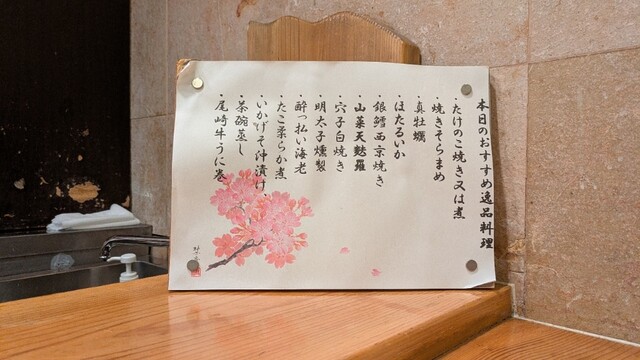 本日のおすすめ逸品料理
・たけのこ焼き又は煮
・焼きそらまめ
・真牡蠣
・ほたるいか
・銀鱈西京焼き
・山菜天麩羅
・穴子白焼き
・明太子燻製
・酔っ払い海老
・たこ柔らか煮
・いかげそ沖漬け
・茶碗蒸し
・尾崎牛うに巻